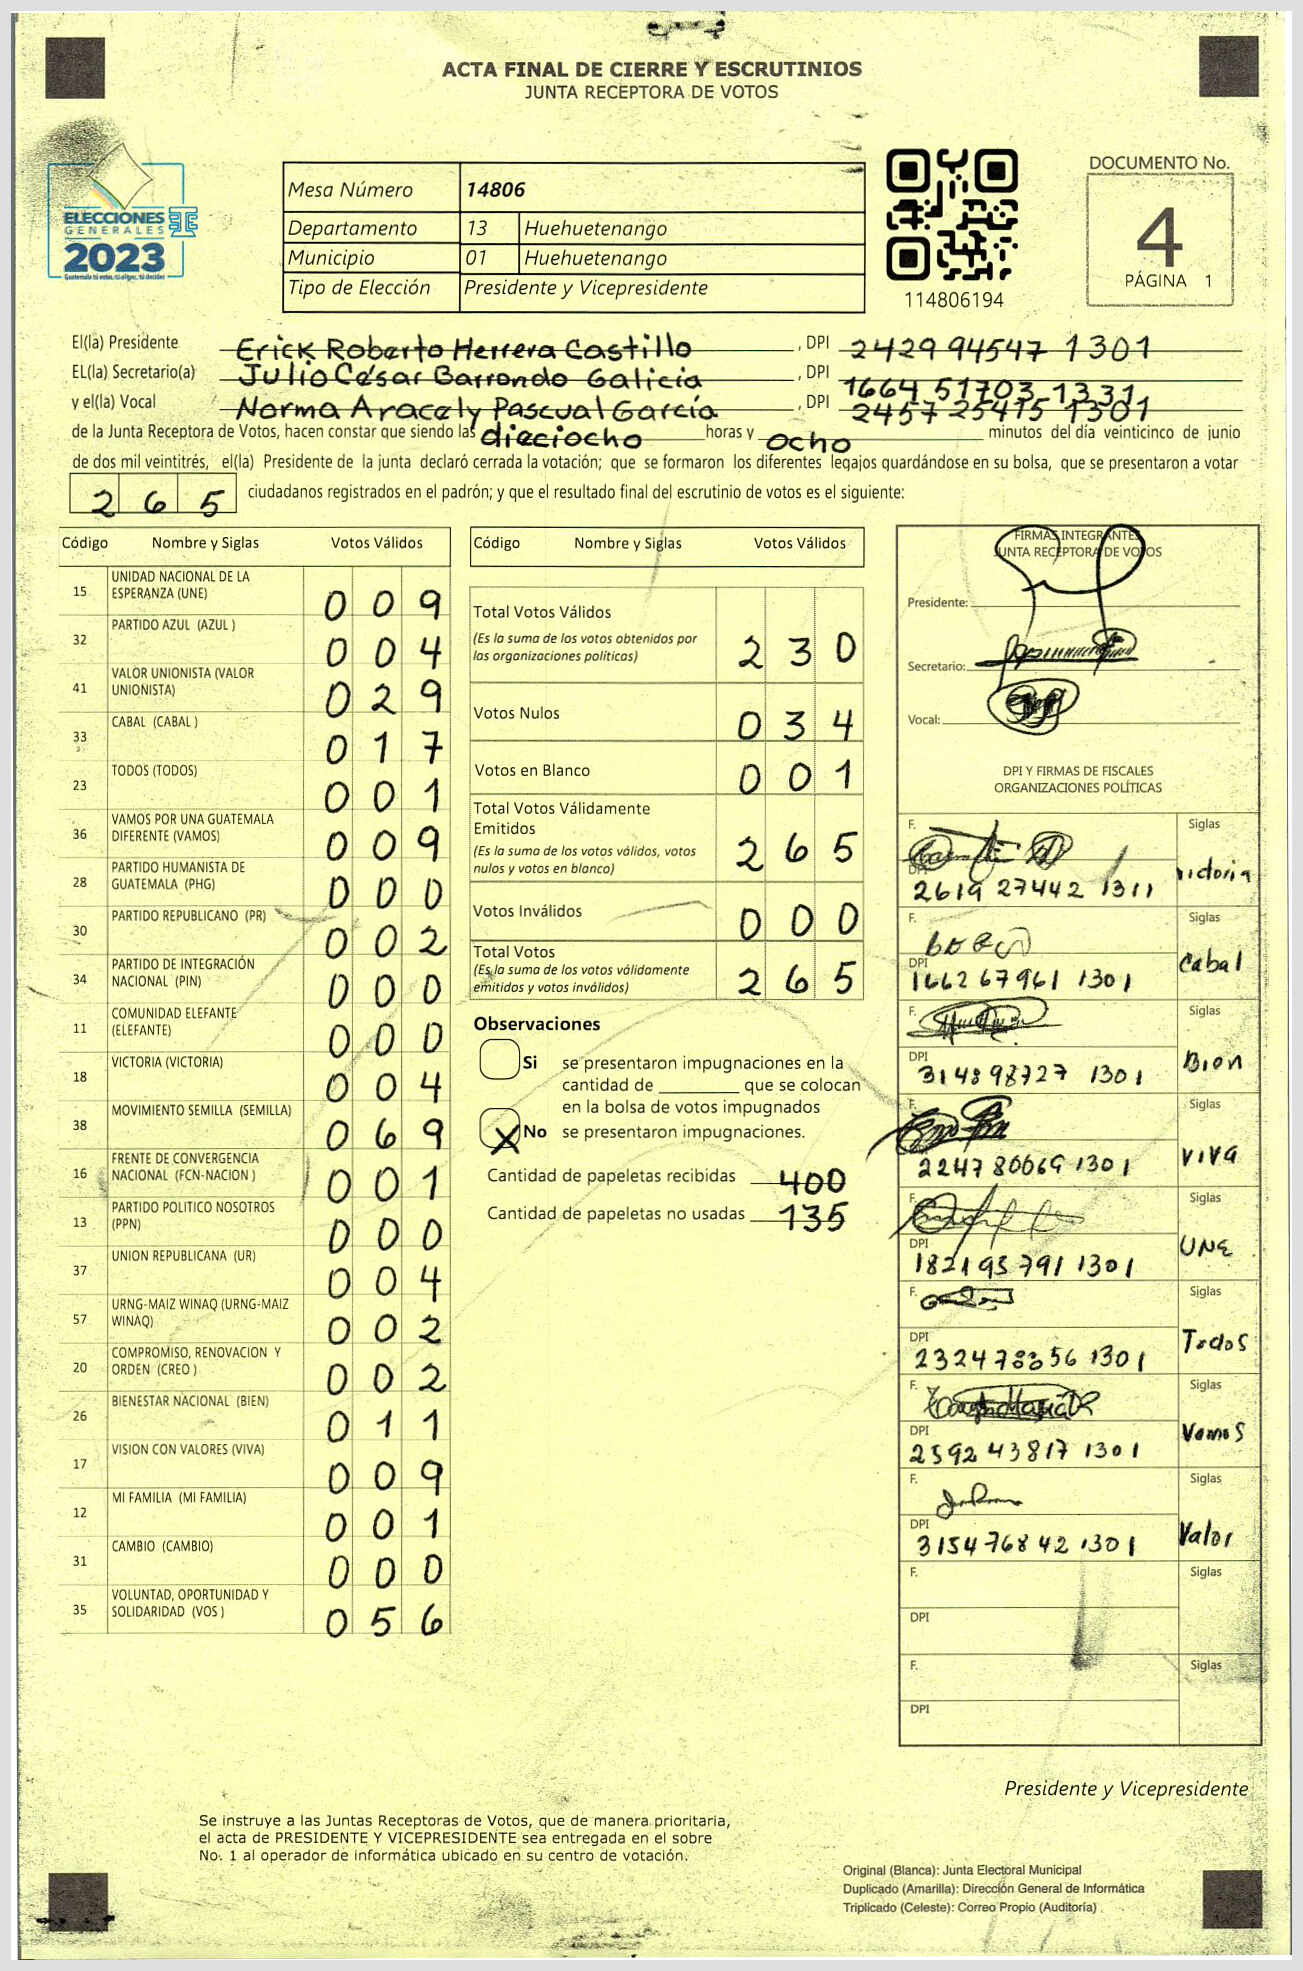 ACTA FINAL DE CIERRE Y ESCRUTINIOS
JUNTA RECEPTORA DE VOTOS
ELECCIONES
GENERALES
2023
Mesa Número 14806
Departamento 13 Huehuetenango
Municipio 01 Huehuetenango
Tipo de Elección Presidente y Vicepresidente
114806194
DOCUMENTO No.
4
PÁGINA 1
El(la) Presidente Erick Roberto Herrera Castillo, DPI 2429 94547 1301
EL(la) Secretario(a) Julio César Barrondo Galicia, DPI 1664 51703 1331
y el(la) Vocal Norma Aracely Pascual García, DPI 2457 25415 1301
de la Junta Receptora de Votos, hacen constar que siendo las dieciocho horas y ocho minutos del día veinticinco de junio
de dos mil veintitrés, el(la) Presidente de la junta declaró cerrada la votación; que se formaron los diferentes legajos guardándose en su bolsa, que se presentaron a votar
265 ciudadanos registrados en el padrón; y que el resultado final del escrutinio de votos es el siguiente:
Código Nombre y Siglas Votos Válidos
15 UNIDAD NACIONAL DE LA ESPERANZA (UNE) 009
32 PARTIDO AZUL (AZUL ) 004
41 VALOR UNIONISTA (VALOR UNIONISTA) 029
33 CABAL (CABAL ) 017
23 TODOS (TODOS) 001
36 VAMOS POR UNA GUATEMALA DIFERENTE (VAMOS) 009
28 PARTIDO HUMANISTA DE GUATEMALA (PHG) 000
30 PARTIDO REPUBLICANO (PR) 002
34 PARTIDO DE INTEGRACIÓN NACIONAL (PIN) 000
11 COMUNIDAD ELEFANTE (ELEFANTE) 000
18 VICTORIA (VICTORIA) 004
38 MOVIMIENTO SEMILLA (SEMILLA) 069
16 FRENTE DE CONVERGENCIA NACIONAL (FCN-NACION ) 001
13 PARTIDO POLITICO NOSOTROS (PPN) 000
37 UNION REPUBLICANA (UR) 004
57 URNG-MAIZ WINAQ (URNG-MAIZ WINAQ) 002
20 COMPROMISO, RENOVACION Y ORDEN (CREO ) 002
26 BIENESTAR NACIONAL (BIEN) 011
17 VISION CON VALORES (VIVA) 009
12 MI FAMILIA (MI FAMILIA) 001
31 CAMBIO (CAMBIO) 000
35 VOLUNTAD, OPORTUNIDAD Y SOLIDARIDAD (VOS ) 056
Código Nombre y Siglas Votos Válidos
Total Votos Válidos 230
(Es la suma de los votos obtenidos por
las organizaciones políticas)
Votos Nulos 034
Votos en Blanco 001
Total Votos Válidamente
Emitidos 265
(Es la suma de los votos válidos, votos
nulos y votos en blanco)
Votos Inválidos 000
Total Votos 265
(Es la suma de los votos válidamente
emitidos y votos inválidos)
Observaciones
Si se presentaron impugnaciones en la
cantidad de ________ que se colocan
en la bolsa de votos impugnados
X No se presentaron impugnaciones.
Cantidad de papeletas recibidas 400
Cantidad de papeletas no usadas 135
FIRMAS INTEGRANTES
JUNTA RECEPTORA DE VOTOS
Presidente:
Secretario:
Vocal:
DPI Y FIRMAS DE FISCALES
ORGANIZACIONES POLÍTICAS
F. Siglas
DPI 2619 27442 1311 victoria
F. Siglas
DPI 1662 67961 1301 Cabal
F. Siglas
DPI 3148 98727 1301 Bien
F. Siglas
2247 80069 1301 VIVA
F. Siglas
DPI 1821 95791 1301 UNE
F. Siglas
DPI 1301 Todos
F. Siglas
DPI 2592 43817 1301 Vamos
F. Siglas
DPI 3154 76842 1301 Valor
F. Siglas
DPI
F. Siglas
DPI
Presidente y Vicepresidente
Se instruye a las Juntas Receptoras de Votos, que de manera prioritaria,
el acta de PRESIDENTE Y VICEPRESIDENTE sea entregada en el sobre
No. 1 al operador de informática ubicado en su centro de votación.
Original (Blanca): Junta Electoral Municipal
Duplicado (Amarilla): Dirección General de Informática
Triplicado (Celeste): Correo Propio (Auditoría)